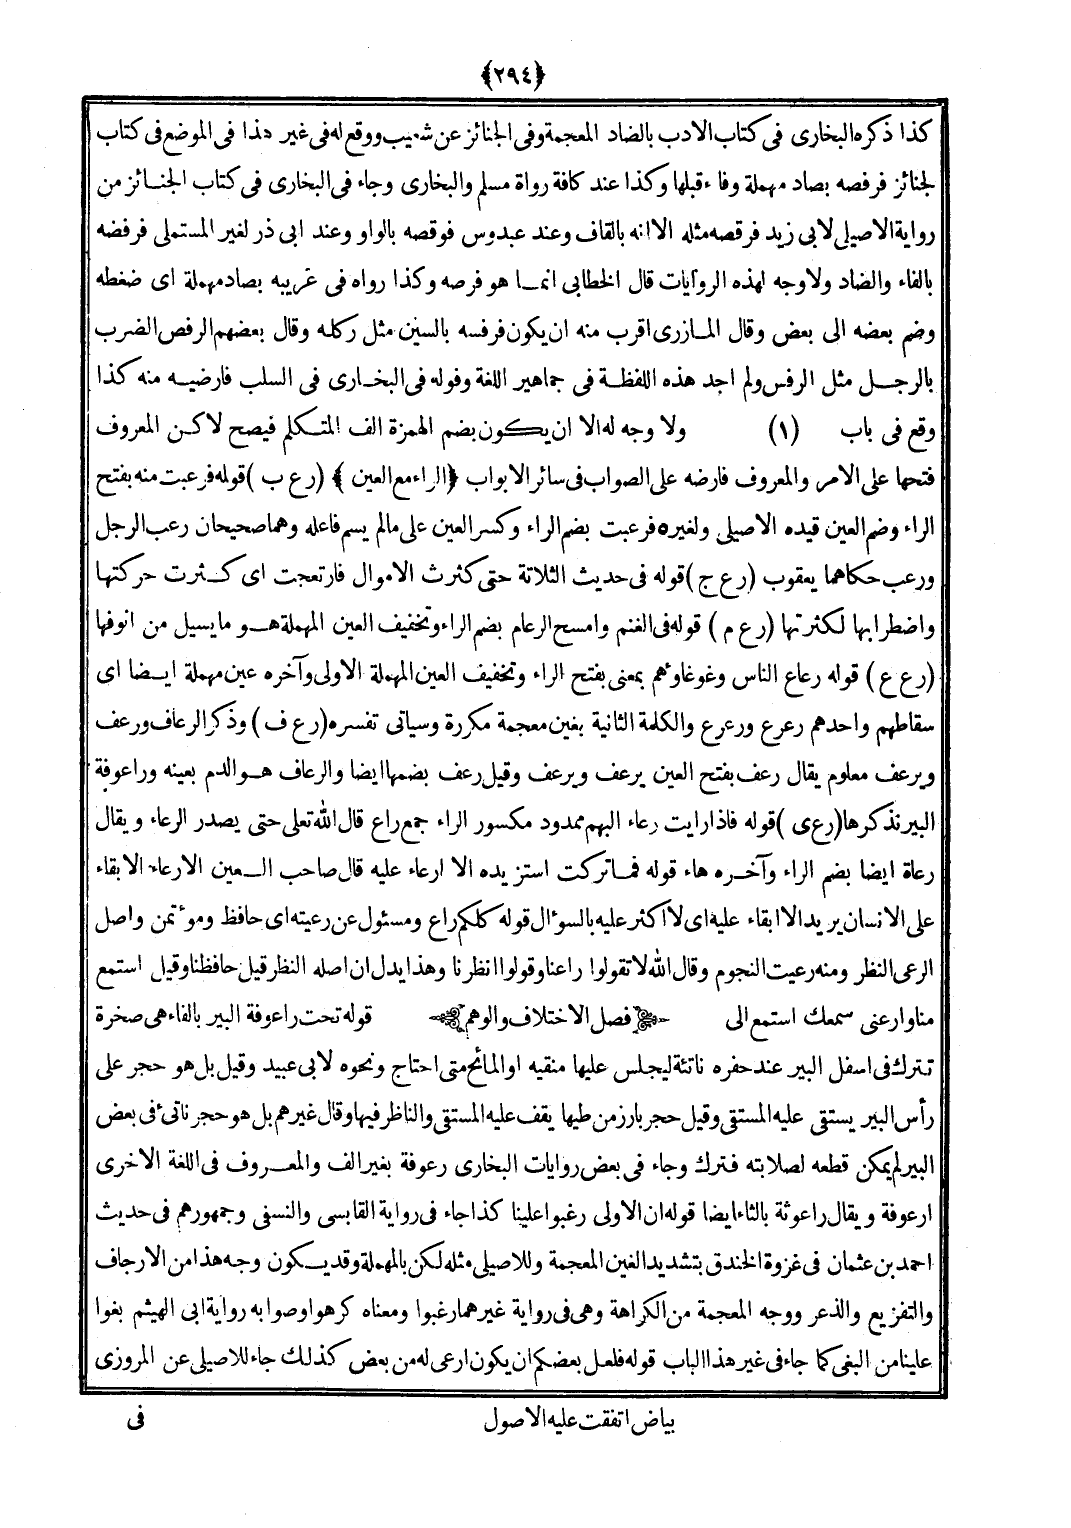 ﴿٢٩٤﴾
كذا ذكره البخارى فى كتاب الادب بالضاد المعجمة وفى الجنائز عن شعيب ووقع له فى غير هذا فى الموضع فى كتاب
لجنائز فرفصه بصاد مهملة وفاء قبلها وكذا عند كافة رواة مسلم والبخارى وجاء فى البخارى فى كتاب الجنائز من
رواية الاصيلى لابى زيد فرقصه مثله الا انه بالقاف وعند عبدوس فوقصه بالواو وعند ابى ذر لغير المستملى فرفضه
بالفاء والضاد ولا وجه لهذه الروايات قال الخطابى انما هو فرصه وكذا رواه فى غريبه بصاد مهملة اى ضغطه
وضم بعضه الى بعض وقال المازرى اقرب منه ان يكون فرفسه بالسين مثل ركله وقال بعضهم الرفص الضرب
بالرجل مثل الرفس ولم اجد هذه اللفظة فى جماهير اللغة وقوله فى البخارى فى السلب فارضيه منه كذا
وقع فى باب (١) ولا وجه له الا ان يكون بضم الهمزة الف المتكلم فيصح لاكن المعروف
فتحها على الامر والمعروف فارضه على الصواب فى سائر الابواب ﴿الراء مع العين﴾ (رع ب) قوله فرعبت منه بفتح
الراء وضم العين قيده الاصيلى ولغيره فرعبت بضم الراء وكسر العين على مالم يسم فاعله وهما صحيحان رعب الرجل
ورعب حكاهما يعقوب (رع ج) قوله فى حديث الثلاثة حتى كثرت الاموال فارتعجت اى كثرت حركتها
واضطرابها لكثرتها (رع م) قوله فى الغنم وامسح الرعام بضم الراء وتخفيف العين المهملة هو مايسيل من انوفها
(رع ع) قوله رعاع الناس وغوغاوهم بمعنى بفتح الراء وتخفيف العين المهملة الاولى وآخره عين مهملة ايضا اى
سقاطهم واحدهم رعرع ورعرع والكلمة الثانية بغين معجمة مكررة وسياتى تفسره (رع ف) وذكر الرعاف ورعف
ويرعف معلوم يقال رعف بفتح العين يرعف ويرعف وقيل رعف بضمها ايضا والرعاف هو الدم بعينه وراعوفة
البير نذكرها (رع ى) قوله فاذا رايت رعاء البهم ممدود مكسور الراء جمع راع قال الله تعلى حتى يصدر الرعاء ويقال
رعاة ايضا بضم الراء وآخره هاء قوله فما تركت استزيده الا ارعاء عليه قال صاحب العين الارعاء الابقاء
على الانسان يريد الا ابقاء عليه اى لا اكثر عليه بالسوال قوله كلكم راع ومسئول عن رعيته اى حافظ وموتمن واصل
الرعى النظر ومنه رعيت النجوم وقال الله لا تقولوا راعنا وقولوا انظرنا وهذا يدل ان اصله النظر قيل حافظنا وقيل استمع
منا وارعنى سمعك استمع الى ﴿فصل الاختلاف والوهم﴾ قوله تحت راعوفة البير بالفاء هى صخرة
تترك فى اسفل البير عند حفره ناتئة ليجلس عليها منقيه او المائح متى احتاج ونحوه لابى عبيد وقيل بل هو حجر على
رأس البير يستقى عليه المستقى وقيل حجر بارز من طيها يقف عليه المستقى والناظر فيها وقال غيرهم بل هو حجر ناتئ فى بعض
البير لم يمكن قطعه لصلابته فترك وجاء فى بعض روايات البخارى رعوفة بغير الف والمعروف فى اللغة الاخرى
ارعوفة ويقال راعوثة بالثاء ايضا قوله ان الاولى رغبوا علينا كذا جاء فى رواية القابسى والنسفى وجمهورهم فى حديث
احمد بن عثمان فى غزوة الخندق بتشديد الغين المعجمة وللاصيلى مثله لكن بالمهملة وقد يكون وجه هذا من الارجاف
والتفزيع والذعر ووجه المعجمة من الكراهة وهى فى رواية غيرهما رغبوا ومعناه كرهوا وصوابه رواية ابى الهيثم بغوا
علينا من البغى كما جاء فى غير هذا الباب قوله فلعل بعضكم ان يكون ارعى له من بعض كذلك جاء للاصيلى عن المروزى
بياض اتفقت عليه الاصول
فى